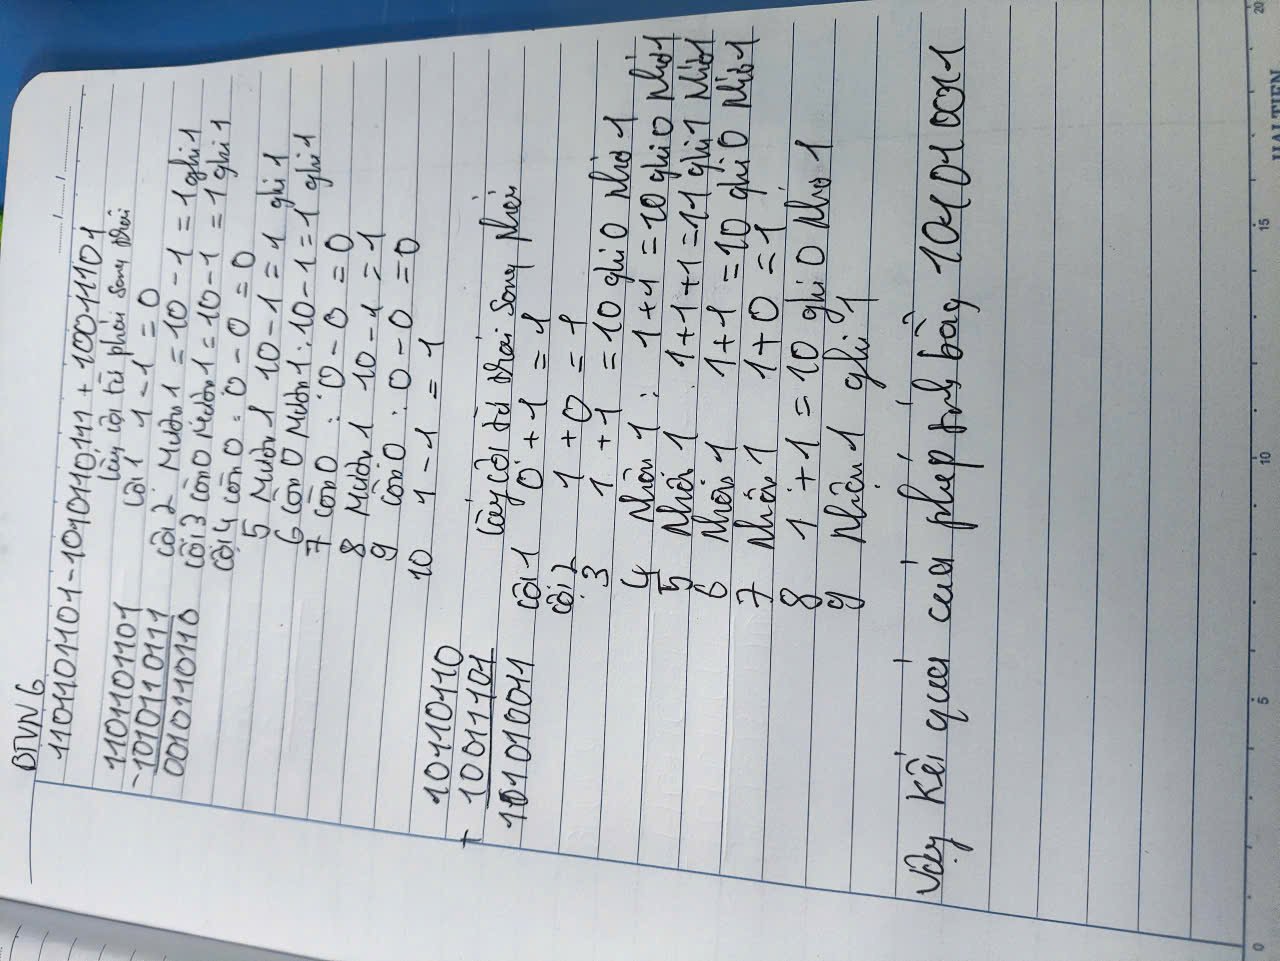 BTVN 6
1101101101 - 1010110111 + 10011101
1101101101
- 1010110111
0010110110
lấy cột từ phải sang trái
cột 1 1 - 1 = 0
cột 2 Mượn 1 = 10 - 1 = 1 ghi 1
cột 3 còn 0 Mượn 1 = 10 - 1 = 1 ghi 1
cột 4 còn 0 : 0 - 0 = 0
5 Mượn 1 10 - 1 = 1 ghi 1
6 còn 0 Mượn 1 : 10 - 1 = 1 ghi 1
7 còn 0 : 0 - 0 = 0
8 Mượn 1 10 - 1 = 1
9 còn 0 : 0 - 0 = 0
10 1 - 1 = 1
10110110
+ 10011101
101010011
lấy cột từ trái sang phải
cột 1 0 + 1 = 1
cột 2 1 + 0 = 1
3 1 + 1 = 10 ghi 0 Nhớ 1
4 Nhân 1 : 1 + 1 = 10 ghi 0 Nhớ 1
5 Nhớ 1 1 + 1 + 1 = 11 ghi 1 Nhớ 1
6 Nhớ 1 1 + 1 = 10 ghi 0 Nhớ 1
7 Nhân 1 1 + 0 = 1
8 1 + 1 = 10 ghi 0 Nhớ 1
9 Nhận 1 ghi 1
Vậy kết quả của phép tính bằng 101010011
0 5 10 15 20
HAI TIEN